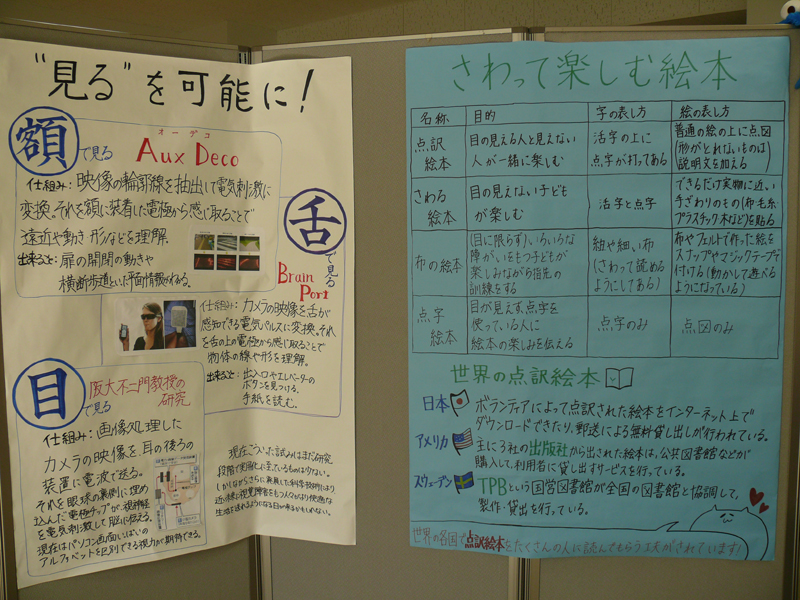 “見る”を可能に!
額で見る
オーデコ
Aux Deco
仕組み:映像の輪郭線を抽出して電気刺激に
変換。それを額に装着した電極から感じ取ることで
遠近や動き 形などを理解
出来ること:扉の開閉の動きや
横断歩道といった平面情報がわかる。
舌で見る
Brain
Port
仕組み:カメラの映像を舌が
感知できる電気パルスに変換。それ
を舌の上の電極から感じ取ることで
物体の線や形を理解。
出来ること:出入口やエレベーターの
ボタンを見つける。
手紙を読む。
目で見る
阪大不二門教授の
研究
仕組み:画像処理した
カメラの映像を耳の後ろの
装置に電波で送る。
それを眼球の裏側に埋め
込んだ電極チップが、視神経
を電気刺激して脳に伝える。
現在はパソコン画面いっぱいの
アルファベットを区別できる視力が期待できる。
現在こういった試みはまだ研究
段階で実用化に至っているものは少ない。
しかしながらさらに発展した科学技術により
近い将来視覚障害をもつ人々がより快適な
生活を送れるようになる日が来るかもしれない。
さわって楽しむ絵本
名称 目的 字の表し方 絵の表し方
点訳
絵本
目の見える人と見えない
人が一緒に楽しむ
活字の上に
点字が打ってある
普通の絵の上に点図
(形がとれないものは)
説明文を加える
さわる
絵本
目の見えない子ども
が楽しむ
活字と点字
できるだけ実物に近い
手ざわりのもの(布毛糸
プラスチック木など)を貼る
布の絵本
(目に限らず)、いろいろな
障がいをもつ子どもが
楽しみながら指先の
訓練をする
紐や細い布
(さわって読める
ようにしてある)
布やフェルトで作った絵を
スナップやマジックテープで
付ける(動かして遊べる
ようになっている)
点字
絵本
目が見えず、点字を
使っている人に
絵本の楽しみを伝える
点字のみ
点図のみ
世界の点訳絵本
日本 ボランティアによって点訳された絵本をインターネット上で
ダウンロードできたり、郵送による無料貸し出しが行われている。
アメリカ 主に3社の出版社から出された絵本は、公共図書館などが
購入して、利用者に貸し出すサービスを行っている。
スウェーデン TPBという国営図書館が全国の図書館と協調して、
製作・貸出を行っている。
世界の各国で点訳絵本をたくさんの人に読んでもらう工夫がされています!